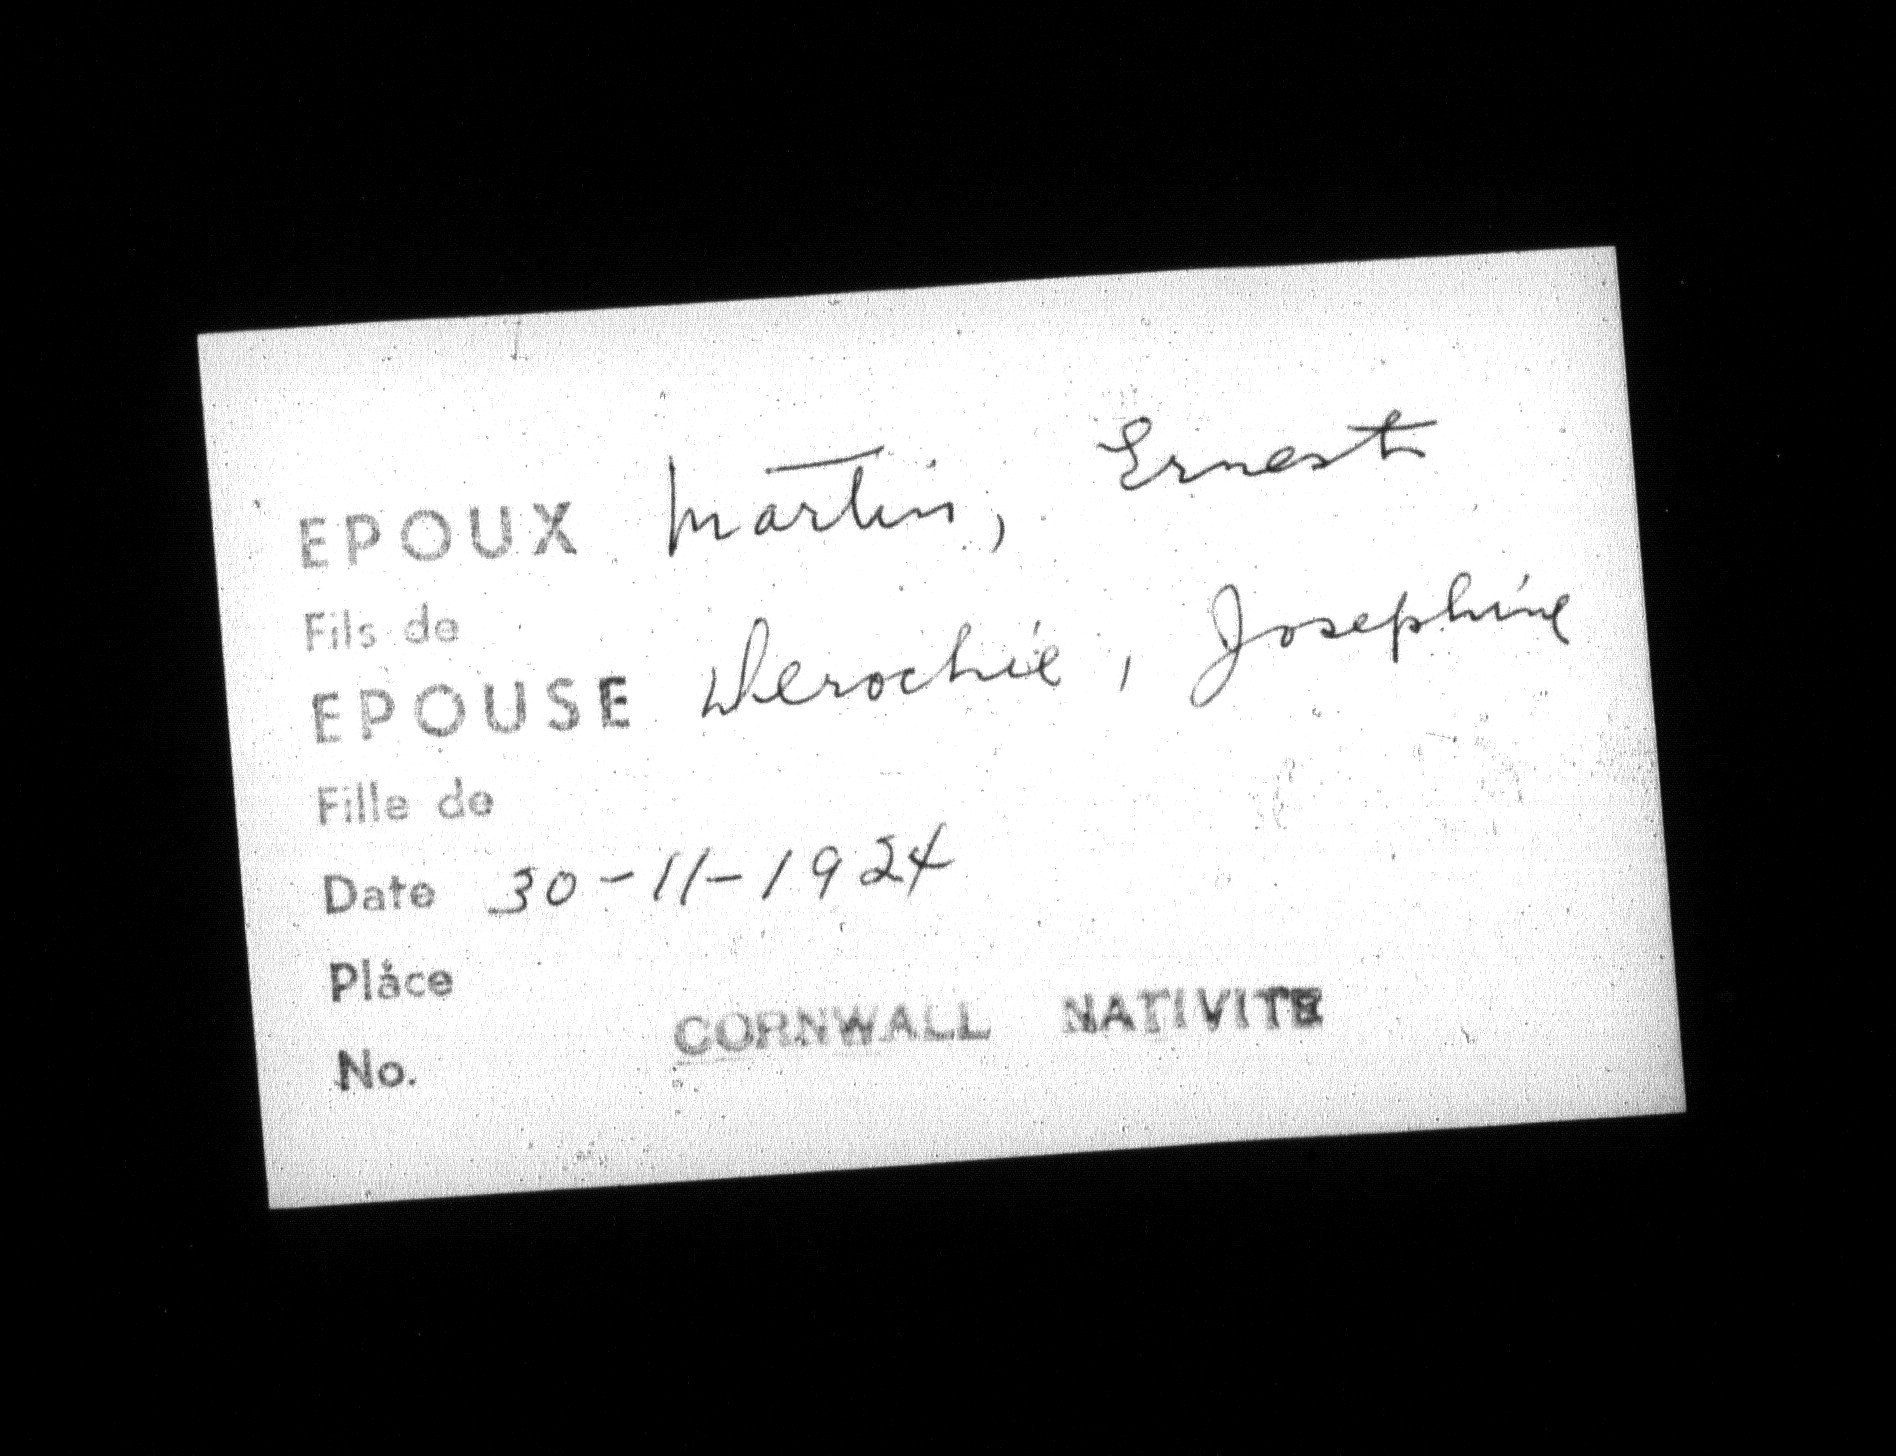 EPOUX Martin, Ernest
Fils de
EPOUSE Derochie, Josephine
Fille de
Date 30-11-1924
Place
CORNWALL NATIVITE
No.